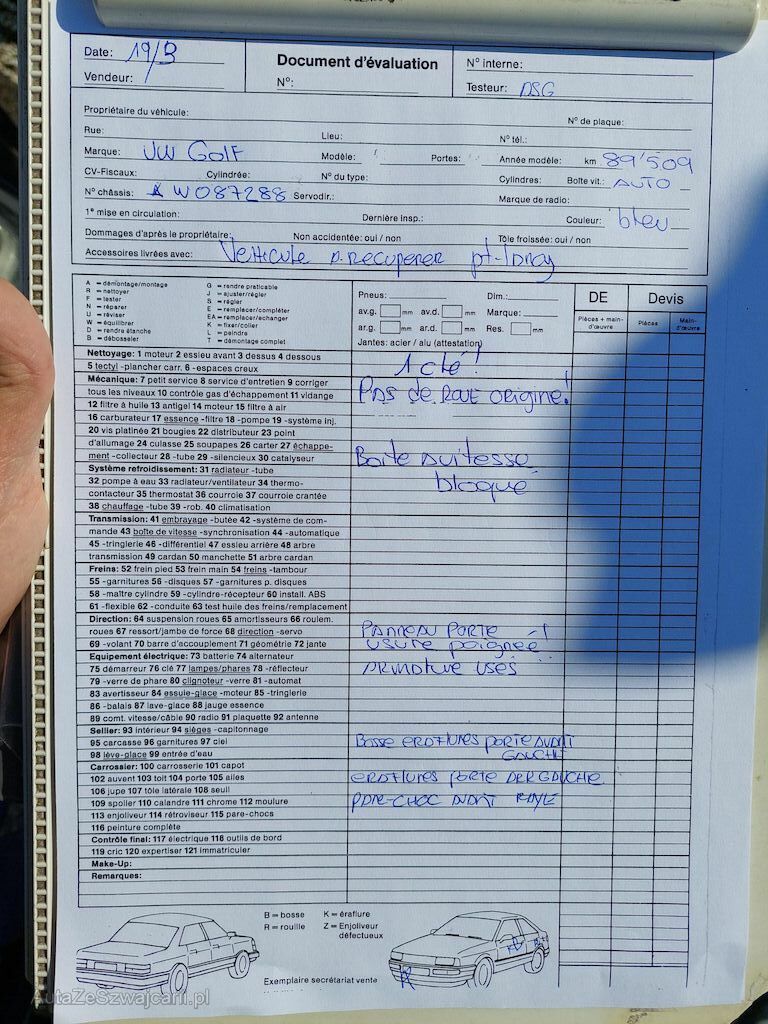 Date: 19/3
Vendeur:
Document d'évaluation
N°:
N° interne:
Testeur: DSG
Propriétaire du véhicule:
N° de plaque:
Rue:
Lieu:
N° tél.:
Marque: VW Golf
Modèle:
Portes:
Année modèle:
km 89'509
CV-Fiscaux:
Cylindrée:
N° du type:
Cylindres:
Boîte vit.: AUTO
N° châssis: W087288
Servodir.:
Marque de radio:
1e mise en circulation:
Dernière insp.:
Couleur: bleu
Dommages d'après le propriétaire:
Non accidentée: oui / non
Tôle froissée: oui / non
Accessoires livrées avec: Véhicule A RECUPERER pt-lancy
A = démontage/montage
R = nettoyer
F = tester
N = réparer
U = réviser
W = équilibrer
D = rendre étanche
B = débosseler
G = rendre praticable
J = ajuster/régler
S = régler
E = remplacer/compléter
EA = remplacer/échanger
K = fixer/coller
L = peindre
T = démontage complet
Pneus:
Dim.:
av.g. mm av.d. mm Marque:
ar.g. mm ar.d. mm Res. mm
Jantes: acier / alu (attestation)
DE
Devis
Pièces + main-d'œuvre
Pièces
Main-d'œuvre
Nettoyage: 1 moteur 2 essieu avant 3 dessus 4 dessous
5 tectyl -plancher carr. 6 -espaces creux
1 clé!
Mécanique: 7 petit service 8 service d'entretien 9 corriger
tous les niveaux 10 contrôle gaz d'échappement 11 vidange
PAS de ROUE ORIGINE!
12 filtre à huile 13 antigel 14 moteur 15 filtre à air
16 carburateur 17 essence -filtre 18 -pompe 19 -système inj.
20 vis platinée 21 bougies 22 distributeur 23 point
d'allumage 24 culasse 25 soupapes 26 carter 27 échappe-
ment -collecteur 28 -tube 29 -silencieux 30 catalyseur
Boite A vitesse
Système retroidissement: 31 radiateur -tube
32 pompe à eau 33 radiateur/ventilateur 34 thermo-
bloque
contacteur 35 thermostat 36 courroie 37 courroie crantée
38 chauffage -tube 39 -rob. 40 climatisation
Transmission: 41 embrayage -butée 42 -système de com-
mande 43 boîte de vitesse -synchronisation 44 -automatique
45 -tringlerie 46 -différentiel 47 essieu arrière 48 arbre
transmission 49 cardan 50 manchette 51 arbre cardan
Freins: 52 frein pied 53 frein main 54 freins -tambour
55 -garnitures 56 -disques 57 -garnitures p. disques
58 -maître cylindre 59 -cylindre-récepteur 60 install. ABS
61 -flexible 62 -conduite 63 test huile des freins/remplacement
Direction: 64 suspension roues 65 amortisseurs 66 roulem.
roues 67 ressort/jambe de force 68 direction -servo
PANNEAU PORTE !
69 -volant 70 barre d'accouplement 71 géométrie 72 jante
usure poignée
Equipement électrique: 73 batterie 74 alternateur
75 démarreur 76 clé 77 lampes/phares 78 -réflecteur
ARMATURE USÉS
79 -verre de phare 80 clignoteur -verre 81 -automat
83 avertisseur 84 essuie-glace -moteur 85 -tringlerie
86 -balais 87 lave-glace 88 jauge essence
89 comt. vitesse/câble 90 radio 91 plaquette 92 antenne
Sellier: 93 intérieur 94 sièges -capitonnage
95 carcasse 96 garnitures 97 ciel
Bosse ERAFLURES PORTE AVANT
98 lève-glace 99 entrée d'eau
GAUCHE
Carrossier: 100 carrosserie 101 capot
102 auvent 103 toit 104 porte 105 ailes
ERAFLURES PORTE DER GAUCHE
106 jupe 107 tôle latérale 108 seuil
109 spoiler 110 calandre 111 chrome 112 moulure
PARE-CHOC AVANT RAYÉ
113 enjoliveur 114 rétroviseur 115 pare-chocs
116 peinture complète
Contrôle final: 117 électrique 118 outils de bord
119 cric 120 expertiser 121 immatriculer
Make-Up:
Remarques:
B = bosse
R = rouille
K = éraflure
Z = Enjoliveur défectueux
Exemplaire secrétariat vente
AutaZeSzwajcarii.pl